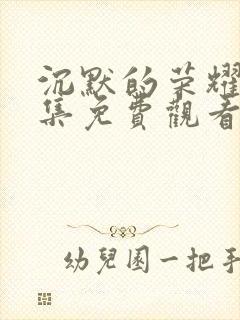 沉默的荣耀
集免費觀看
幼兒園一把手